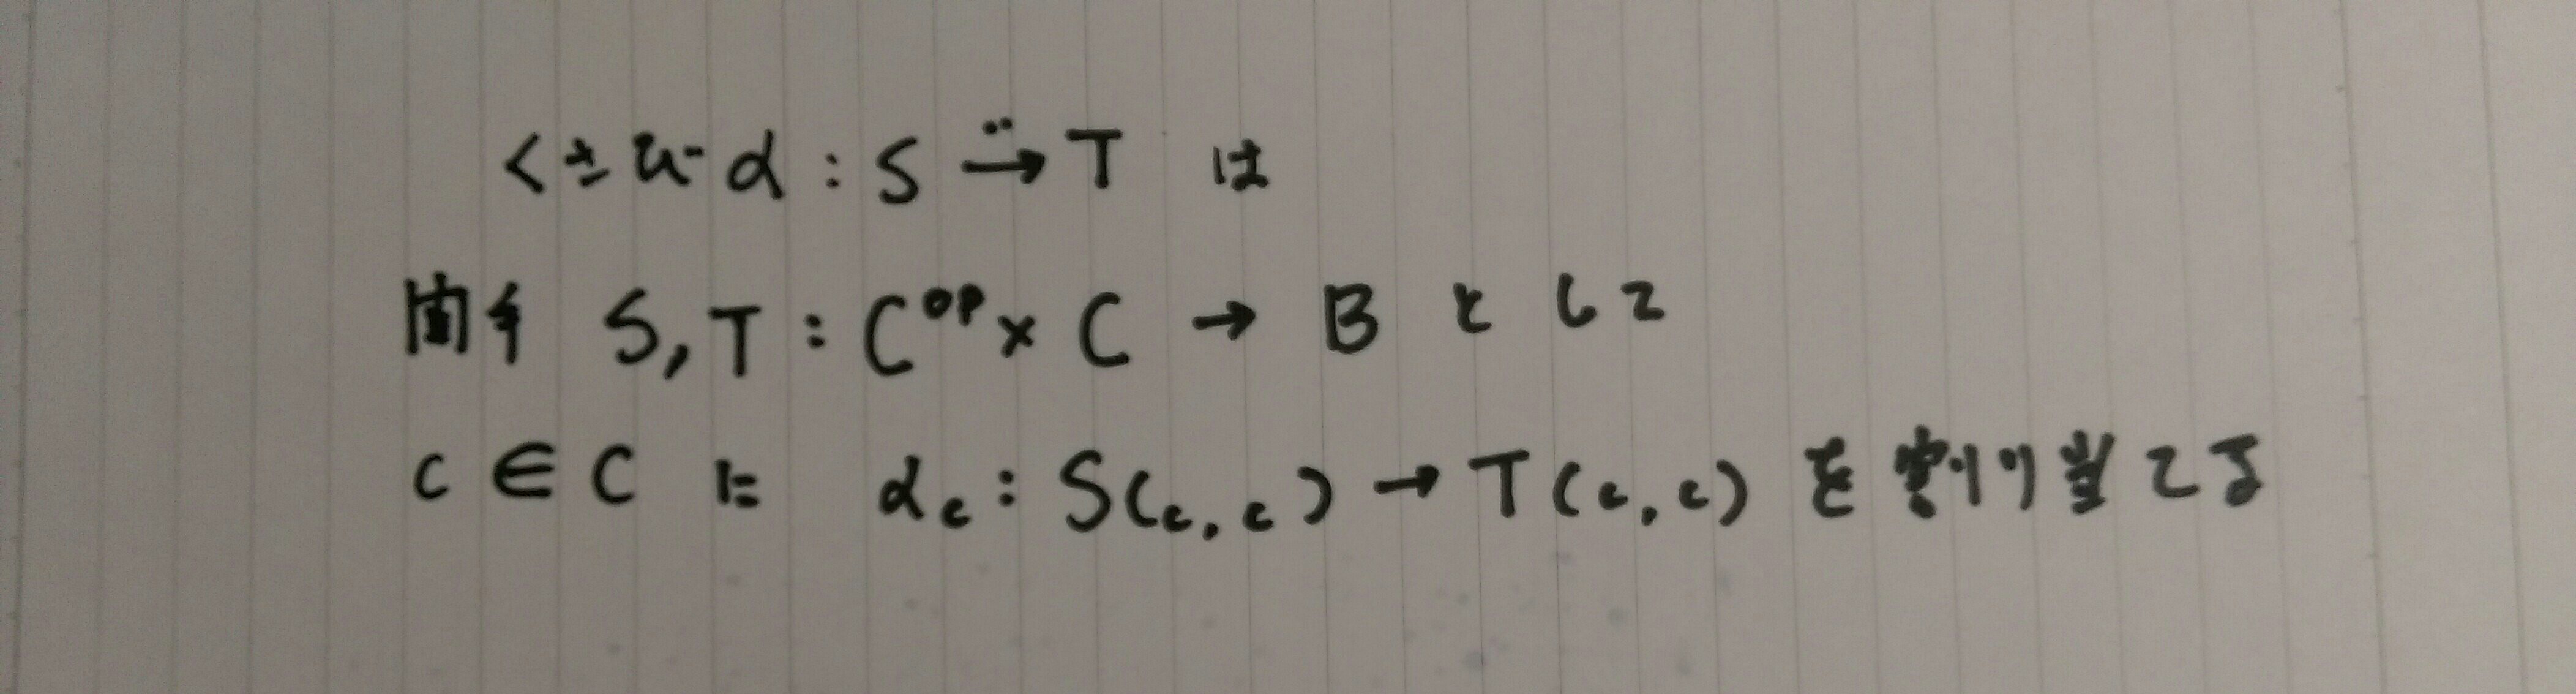 くさび α : S ⃛→ T は
関手 S, T : C^op × C → B として
c ∈ C に α_c : S(c, c) → T(c, c) を割り当てる